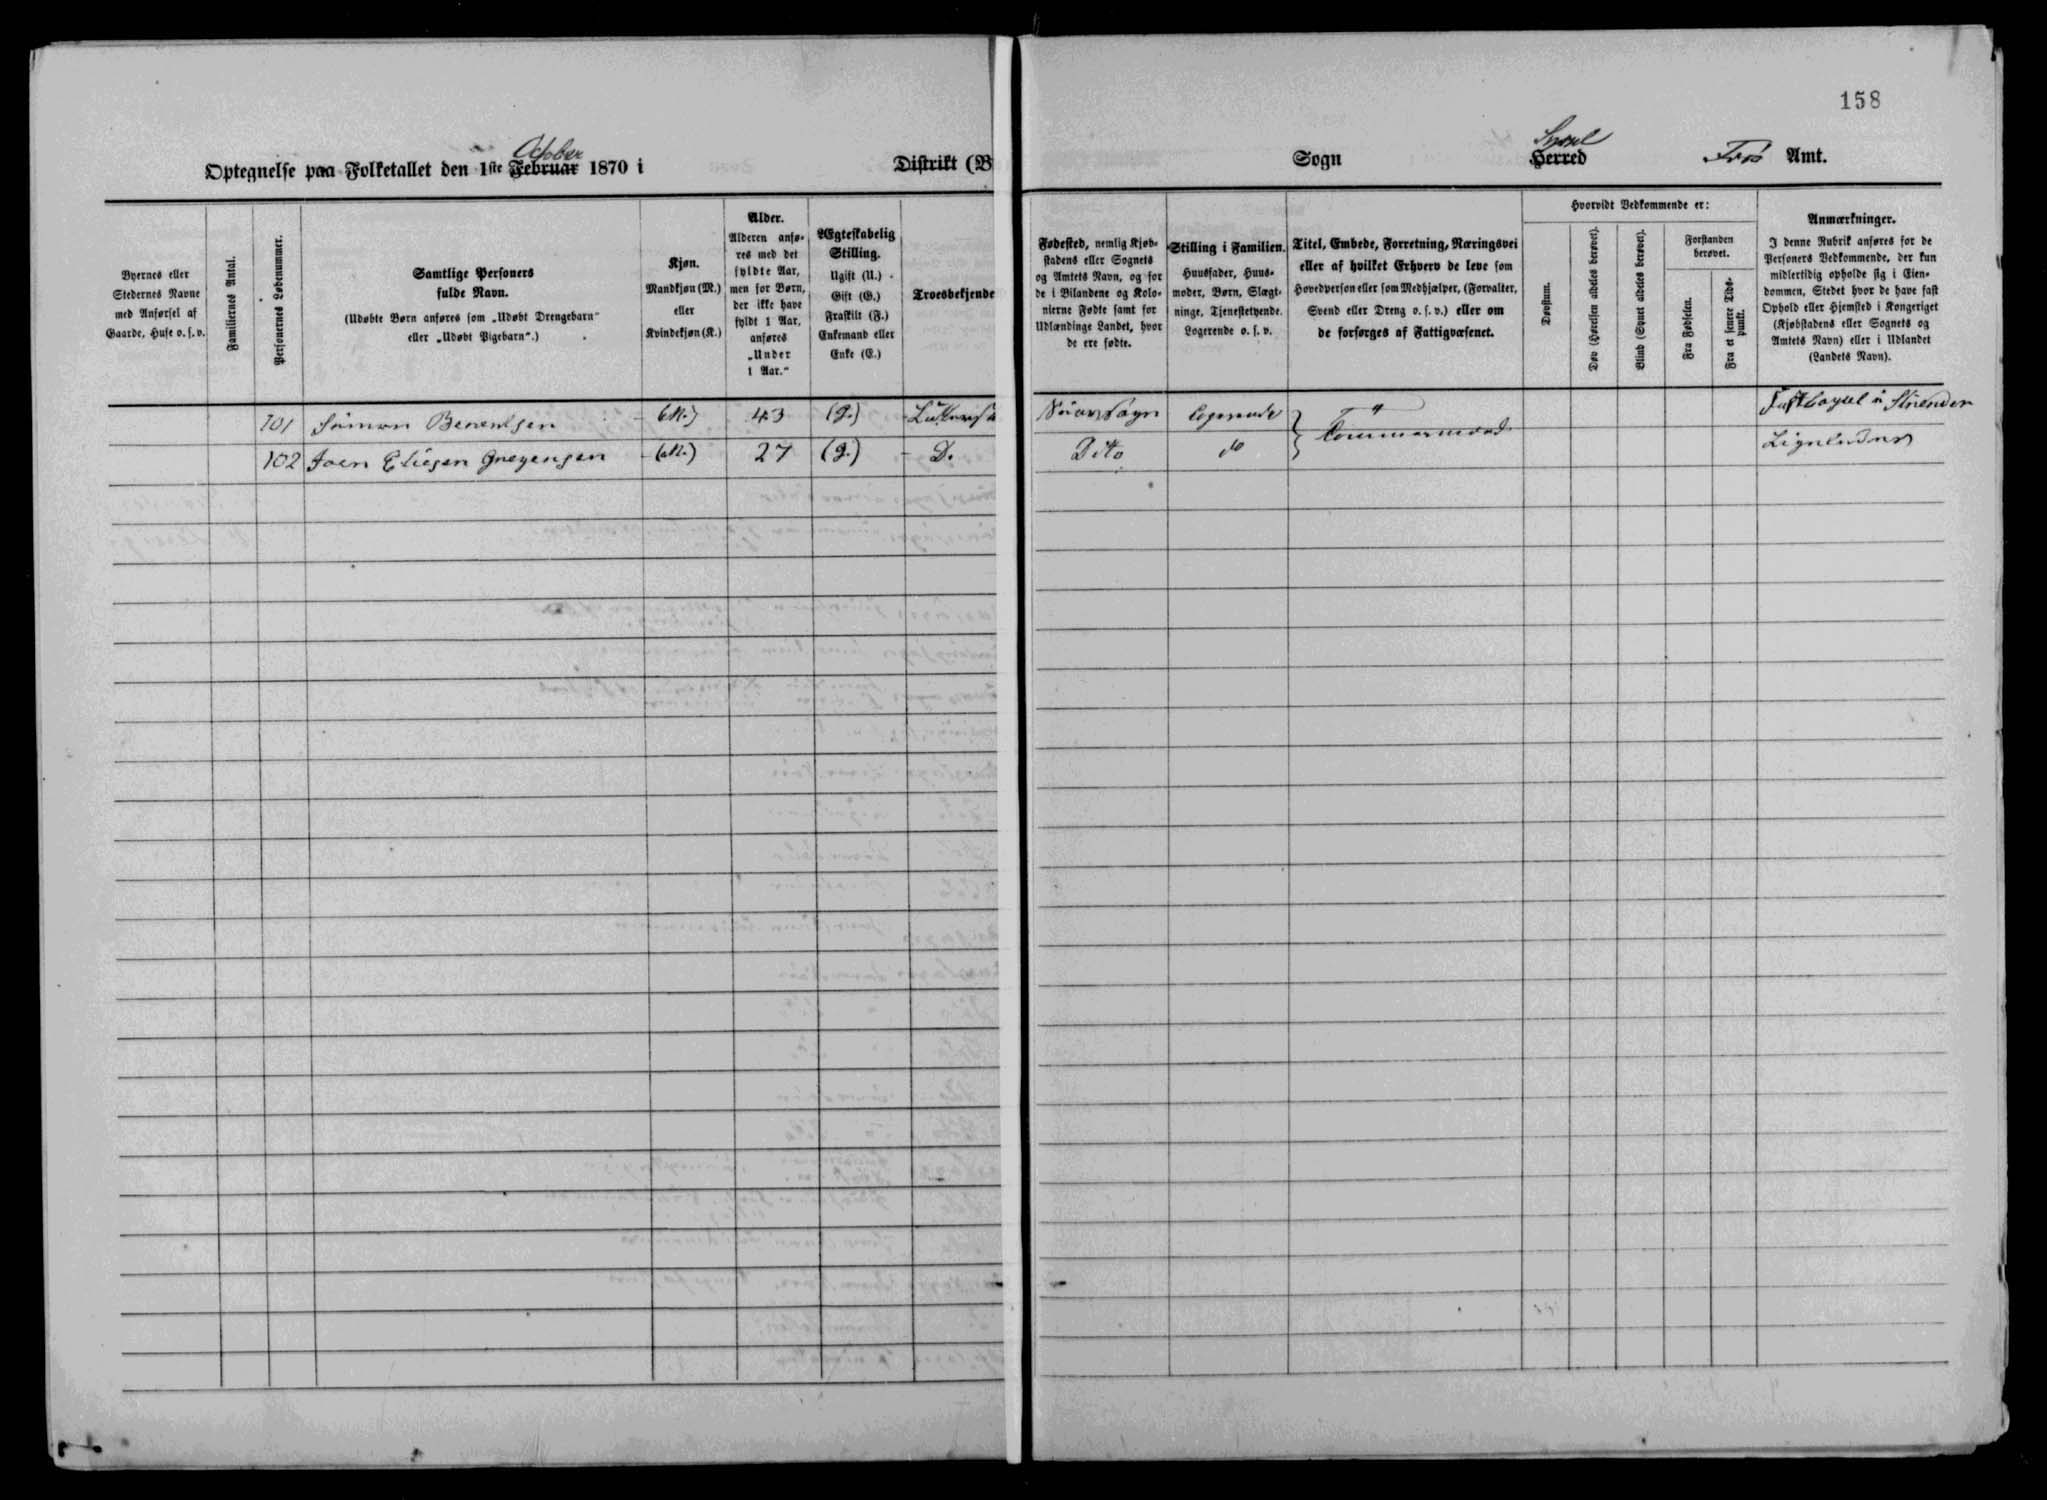 158
October Syssel
Optegnelse paa Folketallet den 1ste Februar 1870 i Distrikt (B Sogn Herred Færø Amt.
Byernes eller
Stedernes Navne
med Anførsel af
Gaarde, Huse o. s. v.
Familiernes Antal.
Personernes Løbenummer.
Samtlige Personers
fulde Navn.
(Udøbte Børn anføres som „Udøbt Drengebarn“
eller „Udøbt Pigebarn“.)
Kjøn.
Mandkjøn (M.)
eller
Kvindekjøn (K.)
Alder.
Alderen anfø-
res med det
fyldte Aar,
men for Børn,
der ikke have
fyldt 1 Aar,
anføres
„Under
1 Aar.“
Ægteskabelig
Stilling.
Ugift (U.)
Gift (G.)
Fraskilt (F.)
Enkemand eller
Enke (E.)
Troesbekjende
Fødested, nemlig Kjøb-
stadens eller Sognets
og Amtets Navn, og for
de i Bilandene og Kolo-
nierne Fødte samt for
Udlændinge Landet, hvor
de ere fødte.
Stilling i Familien.
Huusfader, Huus-
moder, Børn, Slægt-
ninge, Tjenestetyende,
Logerende o. s. v.
Titel, Embede, Forretning, Næringsvei
eller af hvilket Erhverv de leve som
Hovedperson eller som Medhjælper, (Forvalter,
Svend eller Dreng o. s. v.) eller om
de forsørges af Fattigvæsenet.
Hvorvidt Vedkommende er:
Døvstum.
Døv (Hørelsen aldeles berøvet).
Blind (Synet aldeles berøvet).
Forstanden
berøvet.
Fra Fødselen.
Fra et senere Tids-
punkt.
Anmærkninger.
I denne Rubrik anføres for de
Personers Vedkommende, der kun
midlertidig opholde sig i Eien-
dommen, Stedet hvor de have fast
Ophold eller Hjemsted i Kongeriget
(Kjøbstadens eller Sognets og
Amtets Navn) eller i Udlandet
(Landets Navn).
101 Simon Berentsen (M.) 43 (G.) Luthersk Logerende Tömmermænd
102 Joen Eliesen Gregersen (M.) 27 (G.) D. Dito do